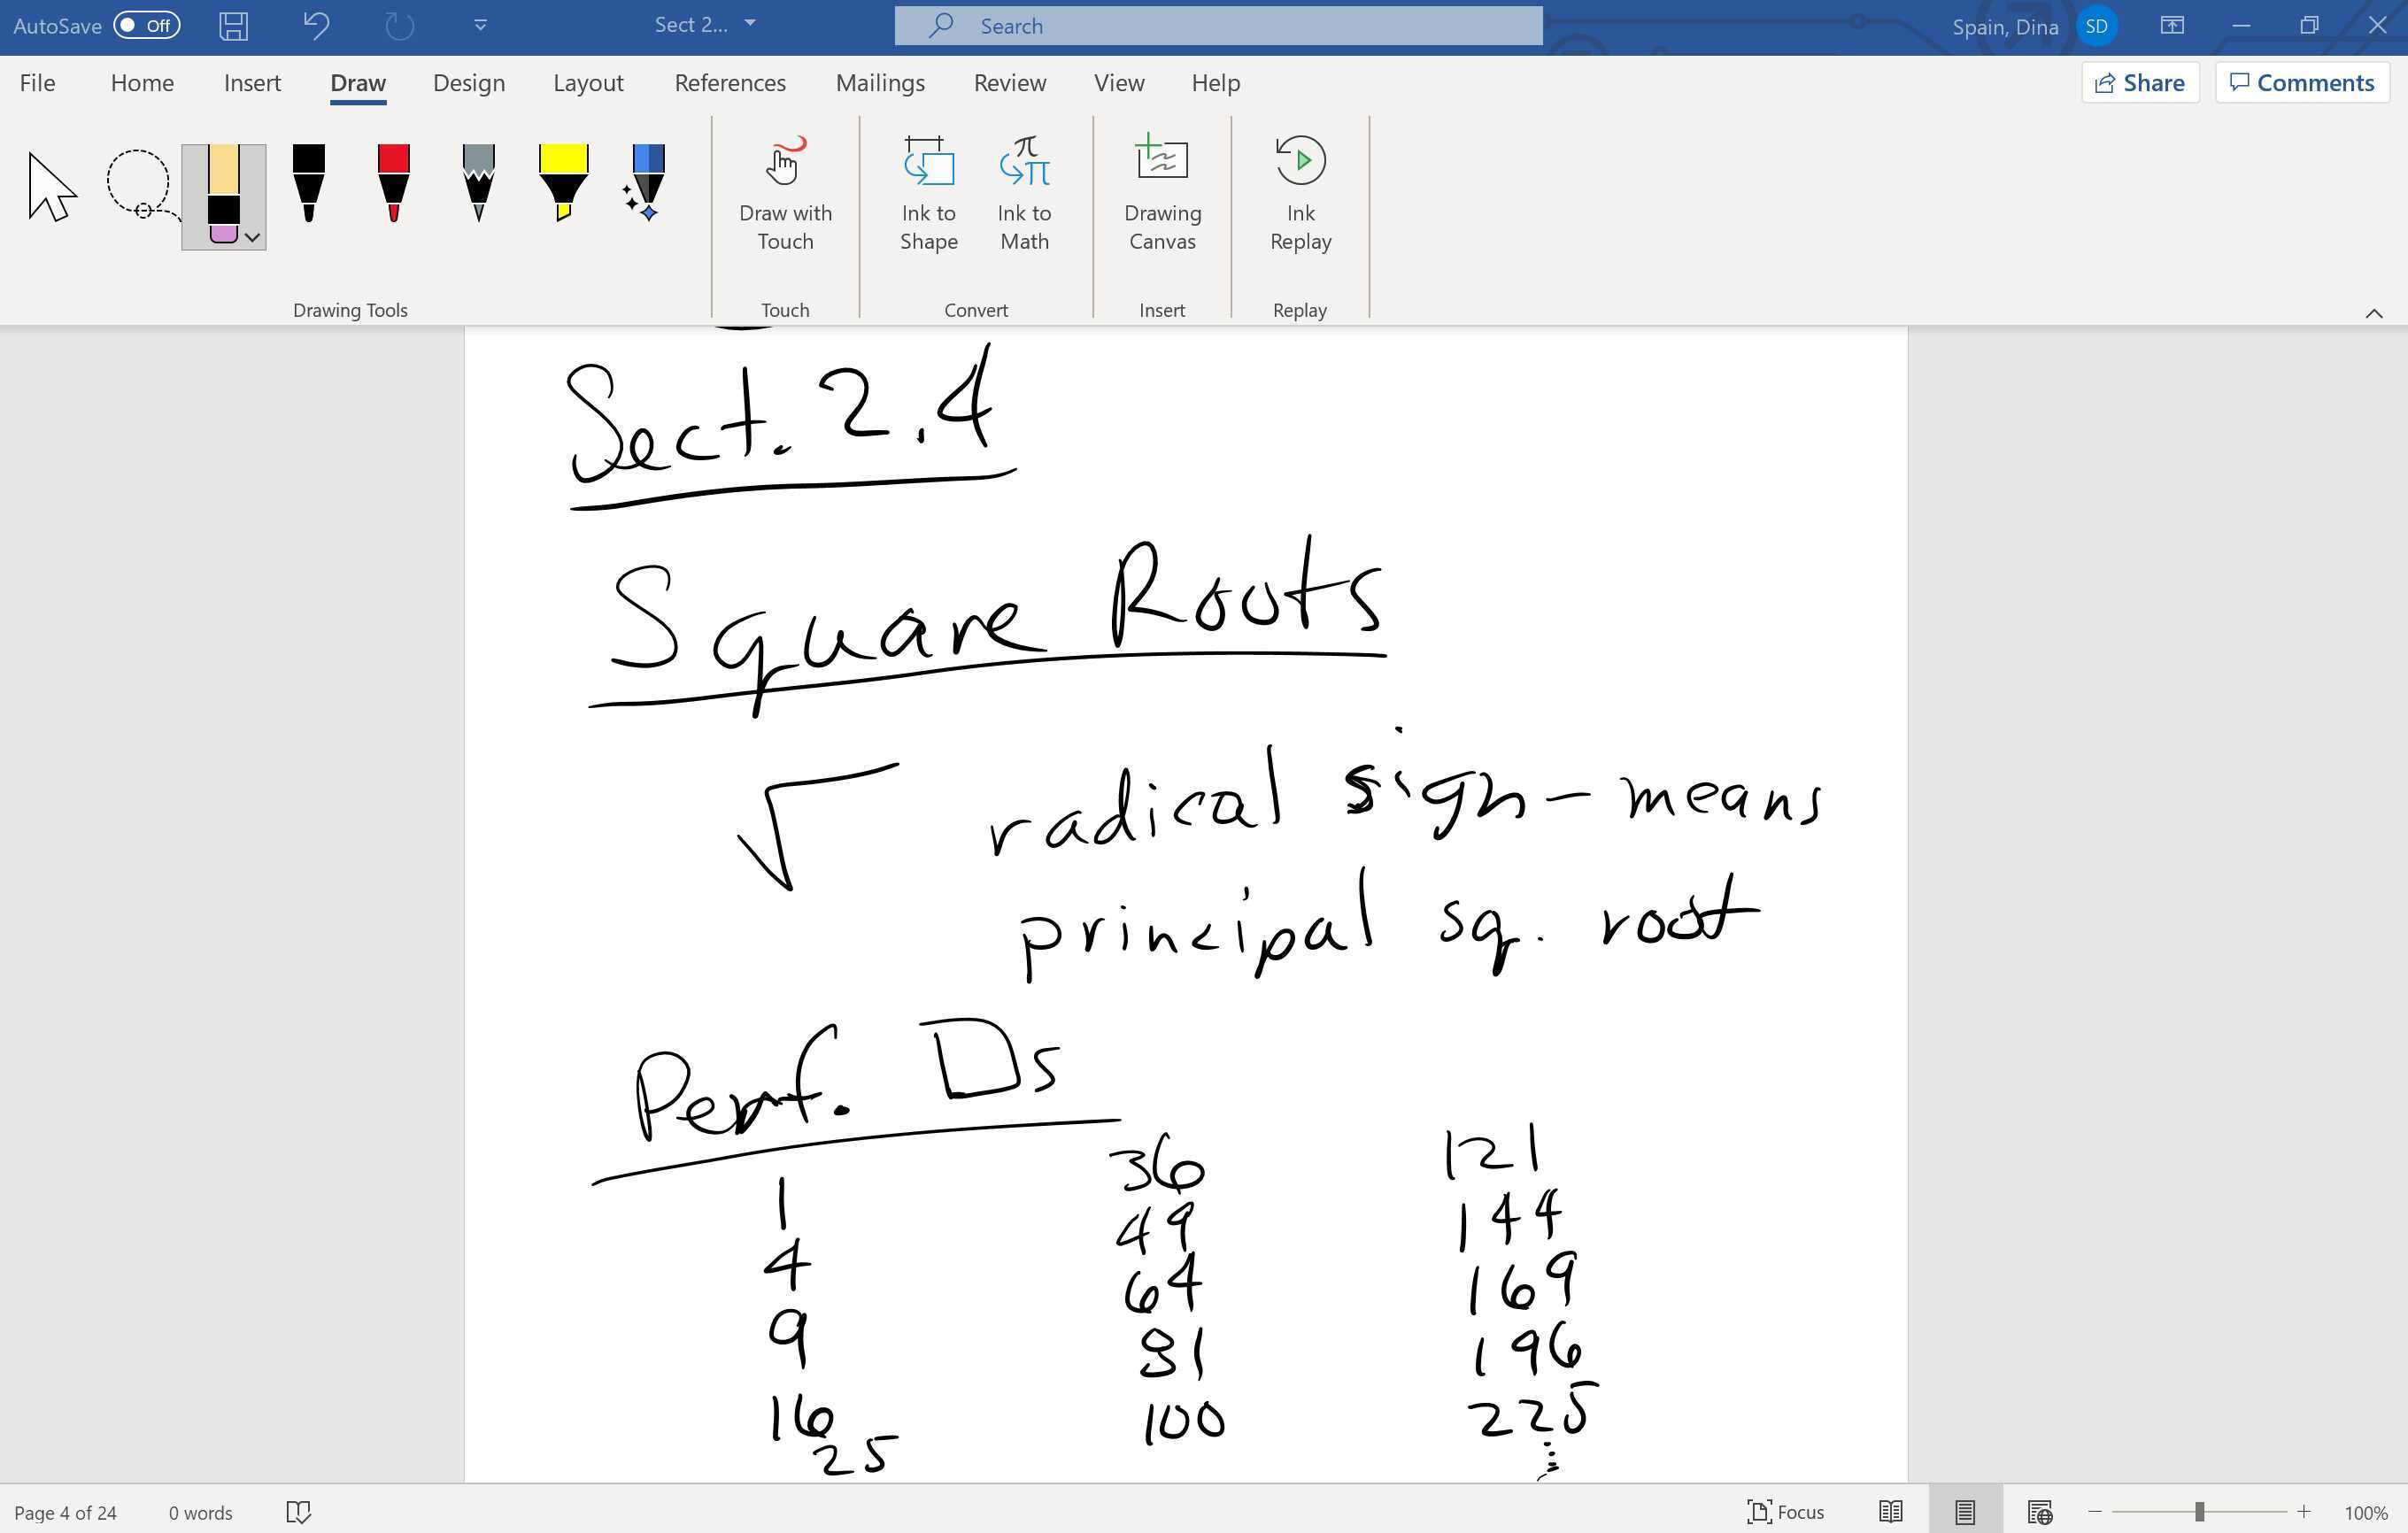 AutoSave Off Sect 2... Search Spain, Dina SD
File Home Insert Draw Design Layout References Mailings Review View Help Share Comments
Draw with Touch
Ink to Shape
Ink to Math
Drawing Canvas
Ink Replay
Drawing Tools Touch Convert Insert Replay
Sect. 2.4
Square Roots
√ radical sign - means
principal sq. root
Perf. □s
1 36 121
4 49 144
9 64 169
16 81 196
25 100 225
⋮
Page 4 of 24 0 words Focus 100%